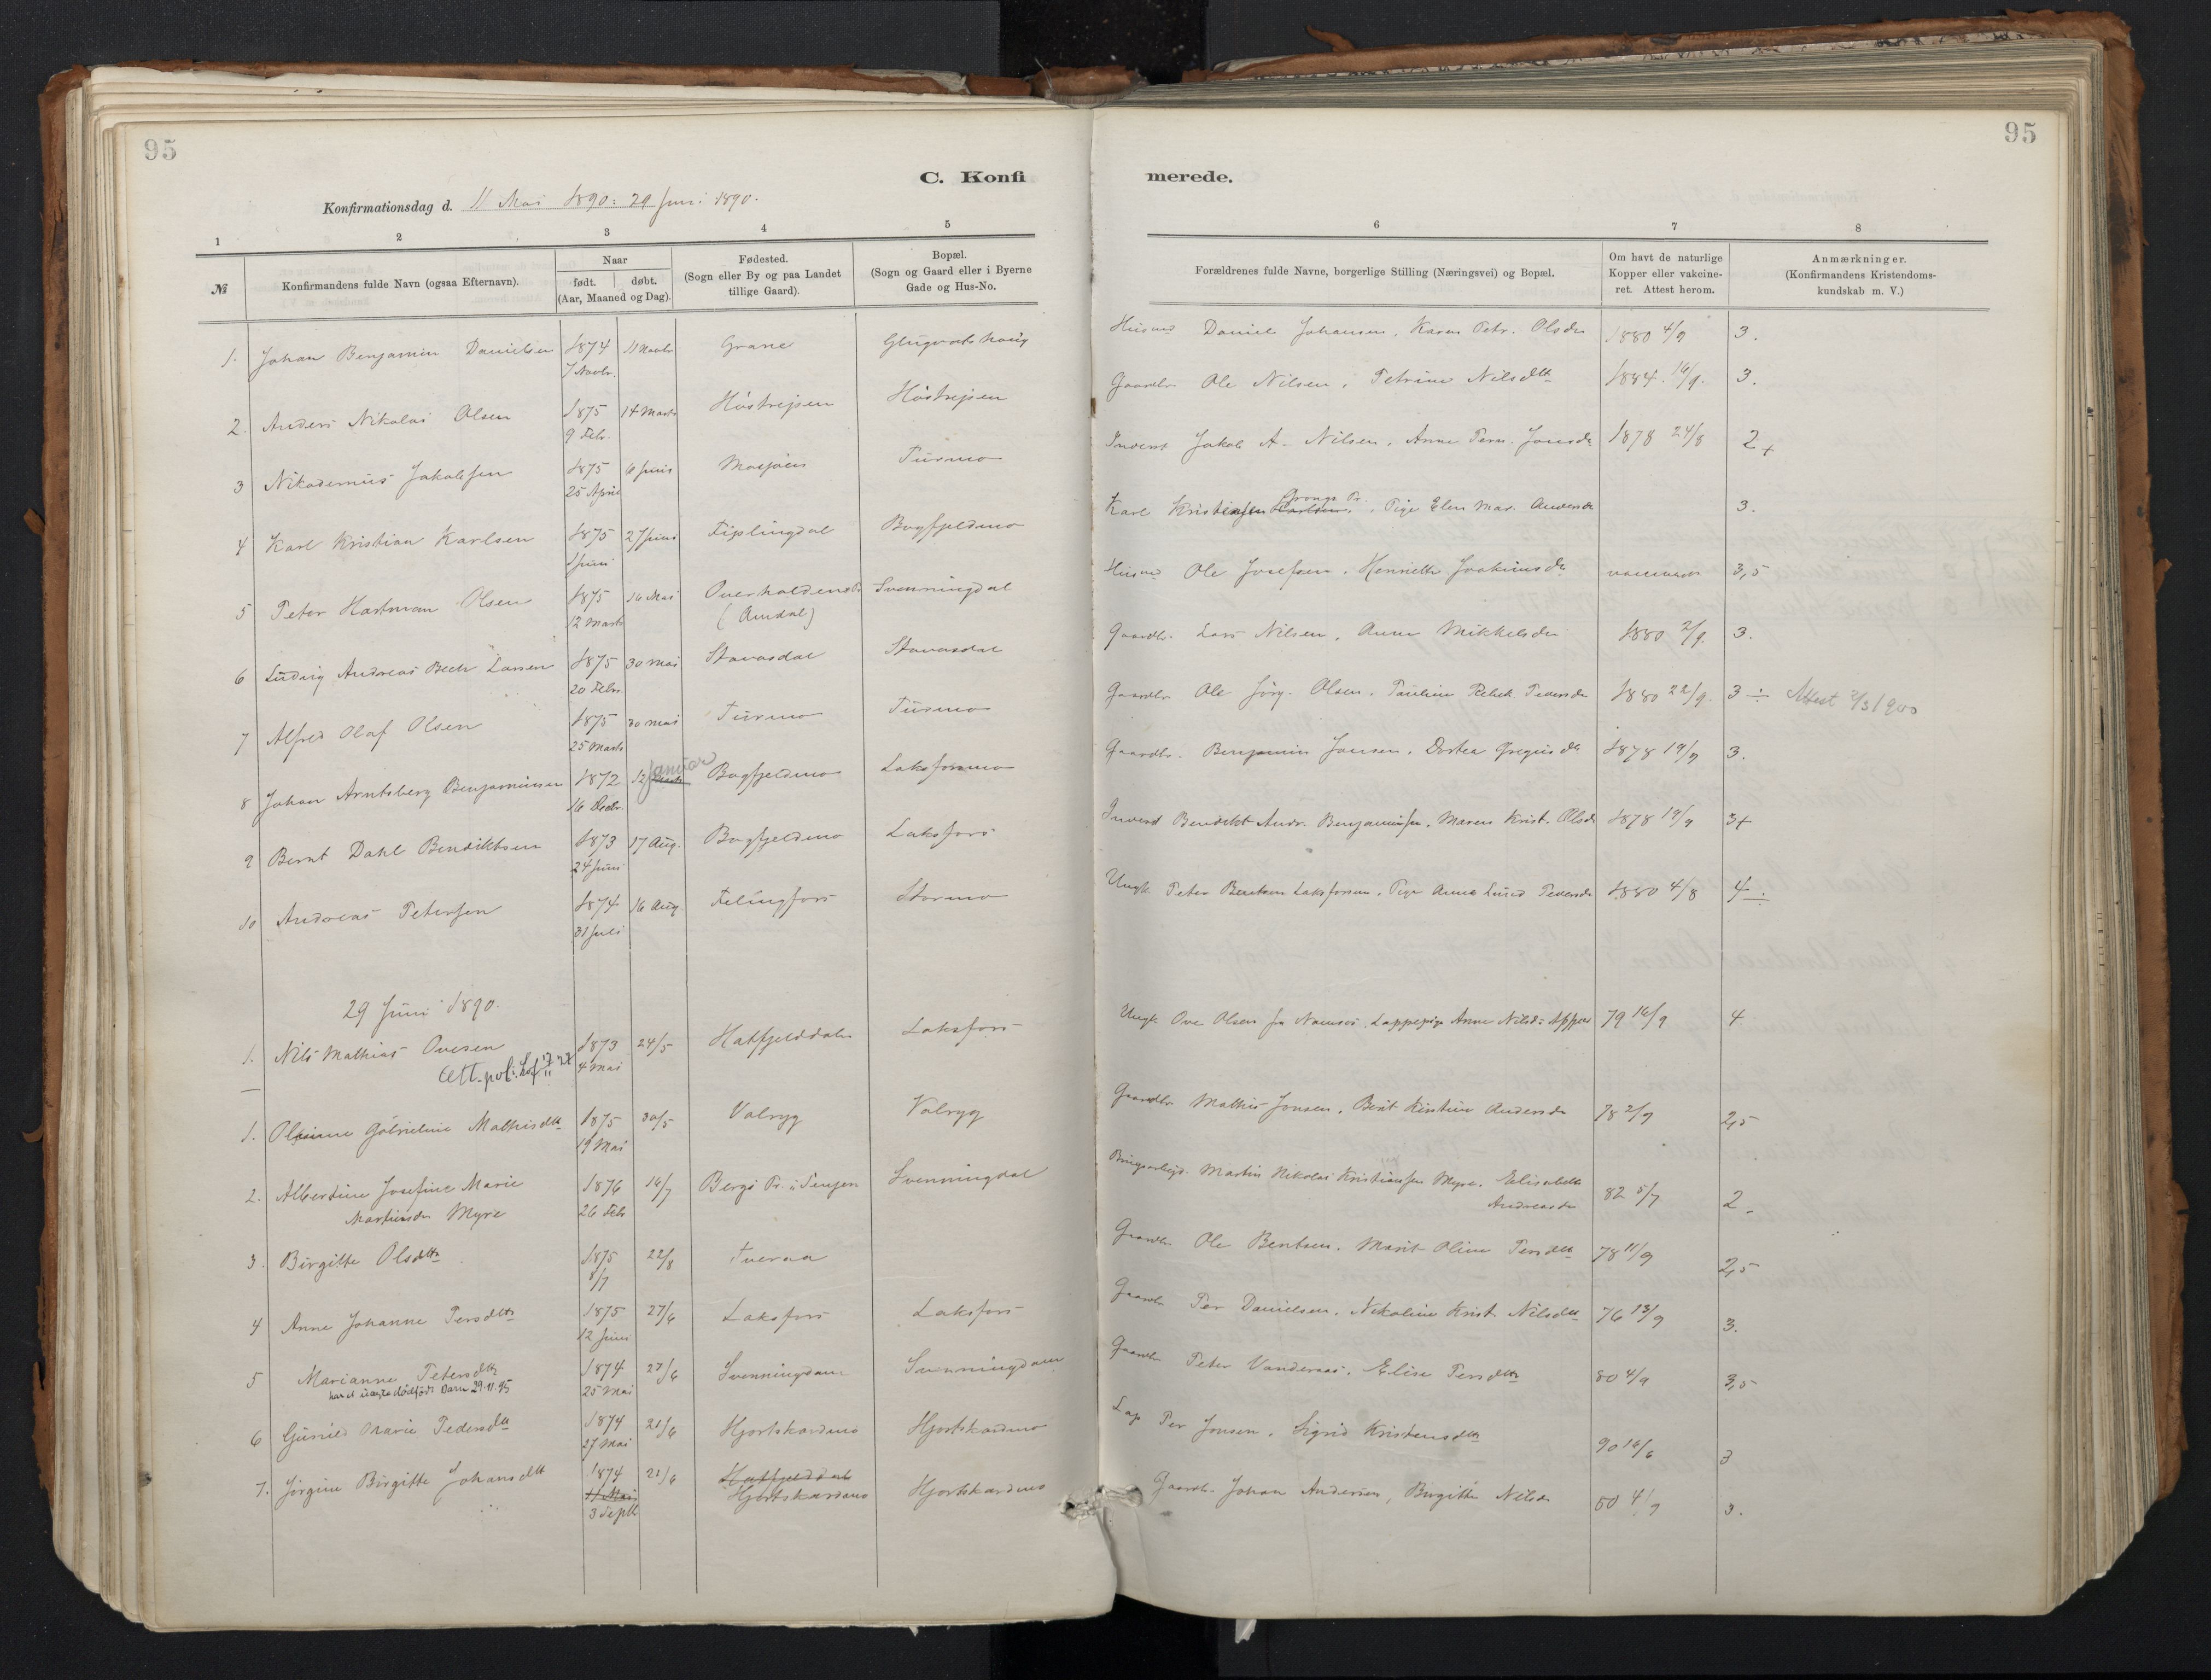 95
95
C. Konfi
merede.
Konfirmationsdag d. 11 Mai 1890: 29 Juni 1890.
1 2 3 4 5 6 7 8
№
Konfirmandens fulde Navn (ogsaa Efternavn).
Naar
født. døbt.
(Aar, Maaned og Dag).
Fødested.
(Sogn eller By og paa Landet
tillige Gaard).
Bopæl.
(Sogn og Gaard eller i Byerne
Gade og Hus-No.
Forældrenes fulde Navne, borgerlige Stilling (Næringsvei) og Bopæl.
Om havt de naturlige
Kopper eller vakcine-
ret. Attest herom.
Anmærkninger.
(Konfirmandens Kristendoms-
kundskab m. V.)
1. Johan Benjamin Danielsen 1874 11 Novbr Grane Husmd Daniel Johansen, Karen Petr. Olsdr 1880 4/9 3.
7 Novbr.
2. Anders Nikolai Olsen 1875 14 Marts Gaardbr. Ole Nilsen, Petrine Nilsdtr 1884 16/9. 3.
9 Febr.
3 Nikodemus Jakobsen 1875 6 Juni Mosjøen Turmo Inderst Jakob A. Nilsen, Anne Jonsdr 1878 24/8 2+
25 April
4 Karl Kristian Karlsen 1875 27 Juni Fiplingdal Bogfjeldmo Karl Kristensen Karlsen, Grongs Pr. Pige Elen Mar. Andersdr 3.
1 Juni
5 Peter Hartman Olsen 1875 16 Mai Overhalden Svenningdal Husmd Ole Josefsen, Henriette Joakimsdr 3,5
12 Marts
6 Ludvig Andreas Bech Larsen 1875 30 Mai Stavasdal Stavasdal Gaardbr. Lars Nilsen, Anne Mikkelsdr 1880 2/9. 3.
20 Febr.
7 Alfred Olaf Olsen 1875 30 Mai Turmo Turmo Gaardbr Ole Jørg. Olsen, Pauline Rebek. Pedersdr 1880 22/9. 3 ÷ Attest 2/3 1900
25 Marts
8 Johan Arntsberg Benjaminsen 1872 12 Januar Bogfjeldmo Laksforsmo Gaardbr. Benjamin Jonsen, Dortea Gregusdr 1878 19/9 3.
16 Decbr.
9 Bernt Dahl Bendiktsen 1873 17 Aug. Bogfjeldmo Laksfors Inderst Bendikt Andr. Benjaminsen, Maren Krist. Olsdr 1878 19/9 3+
24 Juni
10 Andreas Petersen 1874 16 Aug Stormo Ungk. Peter Bentsen Laksforsmo, Pige Anne Pedersdr 1880 4/8 4 ÷
31 Juli
29 Juni 1890.
1. Nils Mathias Ovesen 1873 24/5 Hatfjelddalen Laksfors Ungk. Ove Olsen fra Namsos, Lappepige Anne Nilsdr 79 16/9 4
4 Mai
1. Gabrieline Mathisdtr 1875 30/5 Valryg Valryg Gaardbr Mathis Jonsen, Berit Kirstine Andersdr 78 2/9 2,5
19 Mai
2. Albertine Josefine Marie 1876 16/7 Bergs Pr. i Senjen Svenningdal Martin Nikolai Kristiansen Myre, Elisabeth
Martinsdr Myre 26 Febr Andreasdr 82 5/7 2-
3. Birgitte Olsdtr 1875 22/8 Tveraa Gaardbr Ole Bentsen, Marit Oline Persdtr 78 11/9 2,5
8/7
4 Anne Johanne Persdtr 1875 27/6 Laksfors Laksfors Gaardbr Per Danielsen, Nikoline Krist. Nilsdtr 76 13/9 3.
12 Juni
5 Marianne Petersdtr 1874 27/6 Svenningdalen Svenningdalen Gaardbr Peter Vanderaas, Elise Persdtr 80 4/9 3,5
har et uægte dødfødt Barn 29.11.95 25 Mai
6 Gunild Marie Pedersdtr 1874 21/6 Hjortskardmo Hjortskardmo Lap Per Jonsen, Sigrid Kristensdtr 90 16/6 3
27 Mai
7. Jørgine Birgitte Johansdtr 1874 21/6 Hatfjelddal Hjortskardmo Gaardbr. Johan Andersen, Birgitte Nilsdr 80 4/9 3.
11 Mai Hjortskardmo
3 Septbr